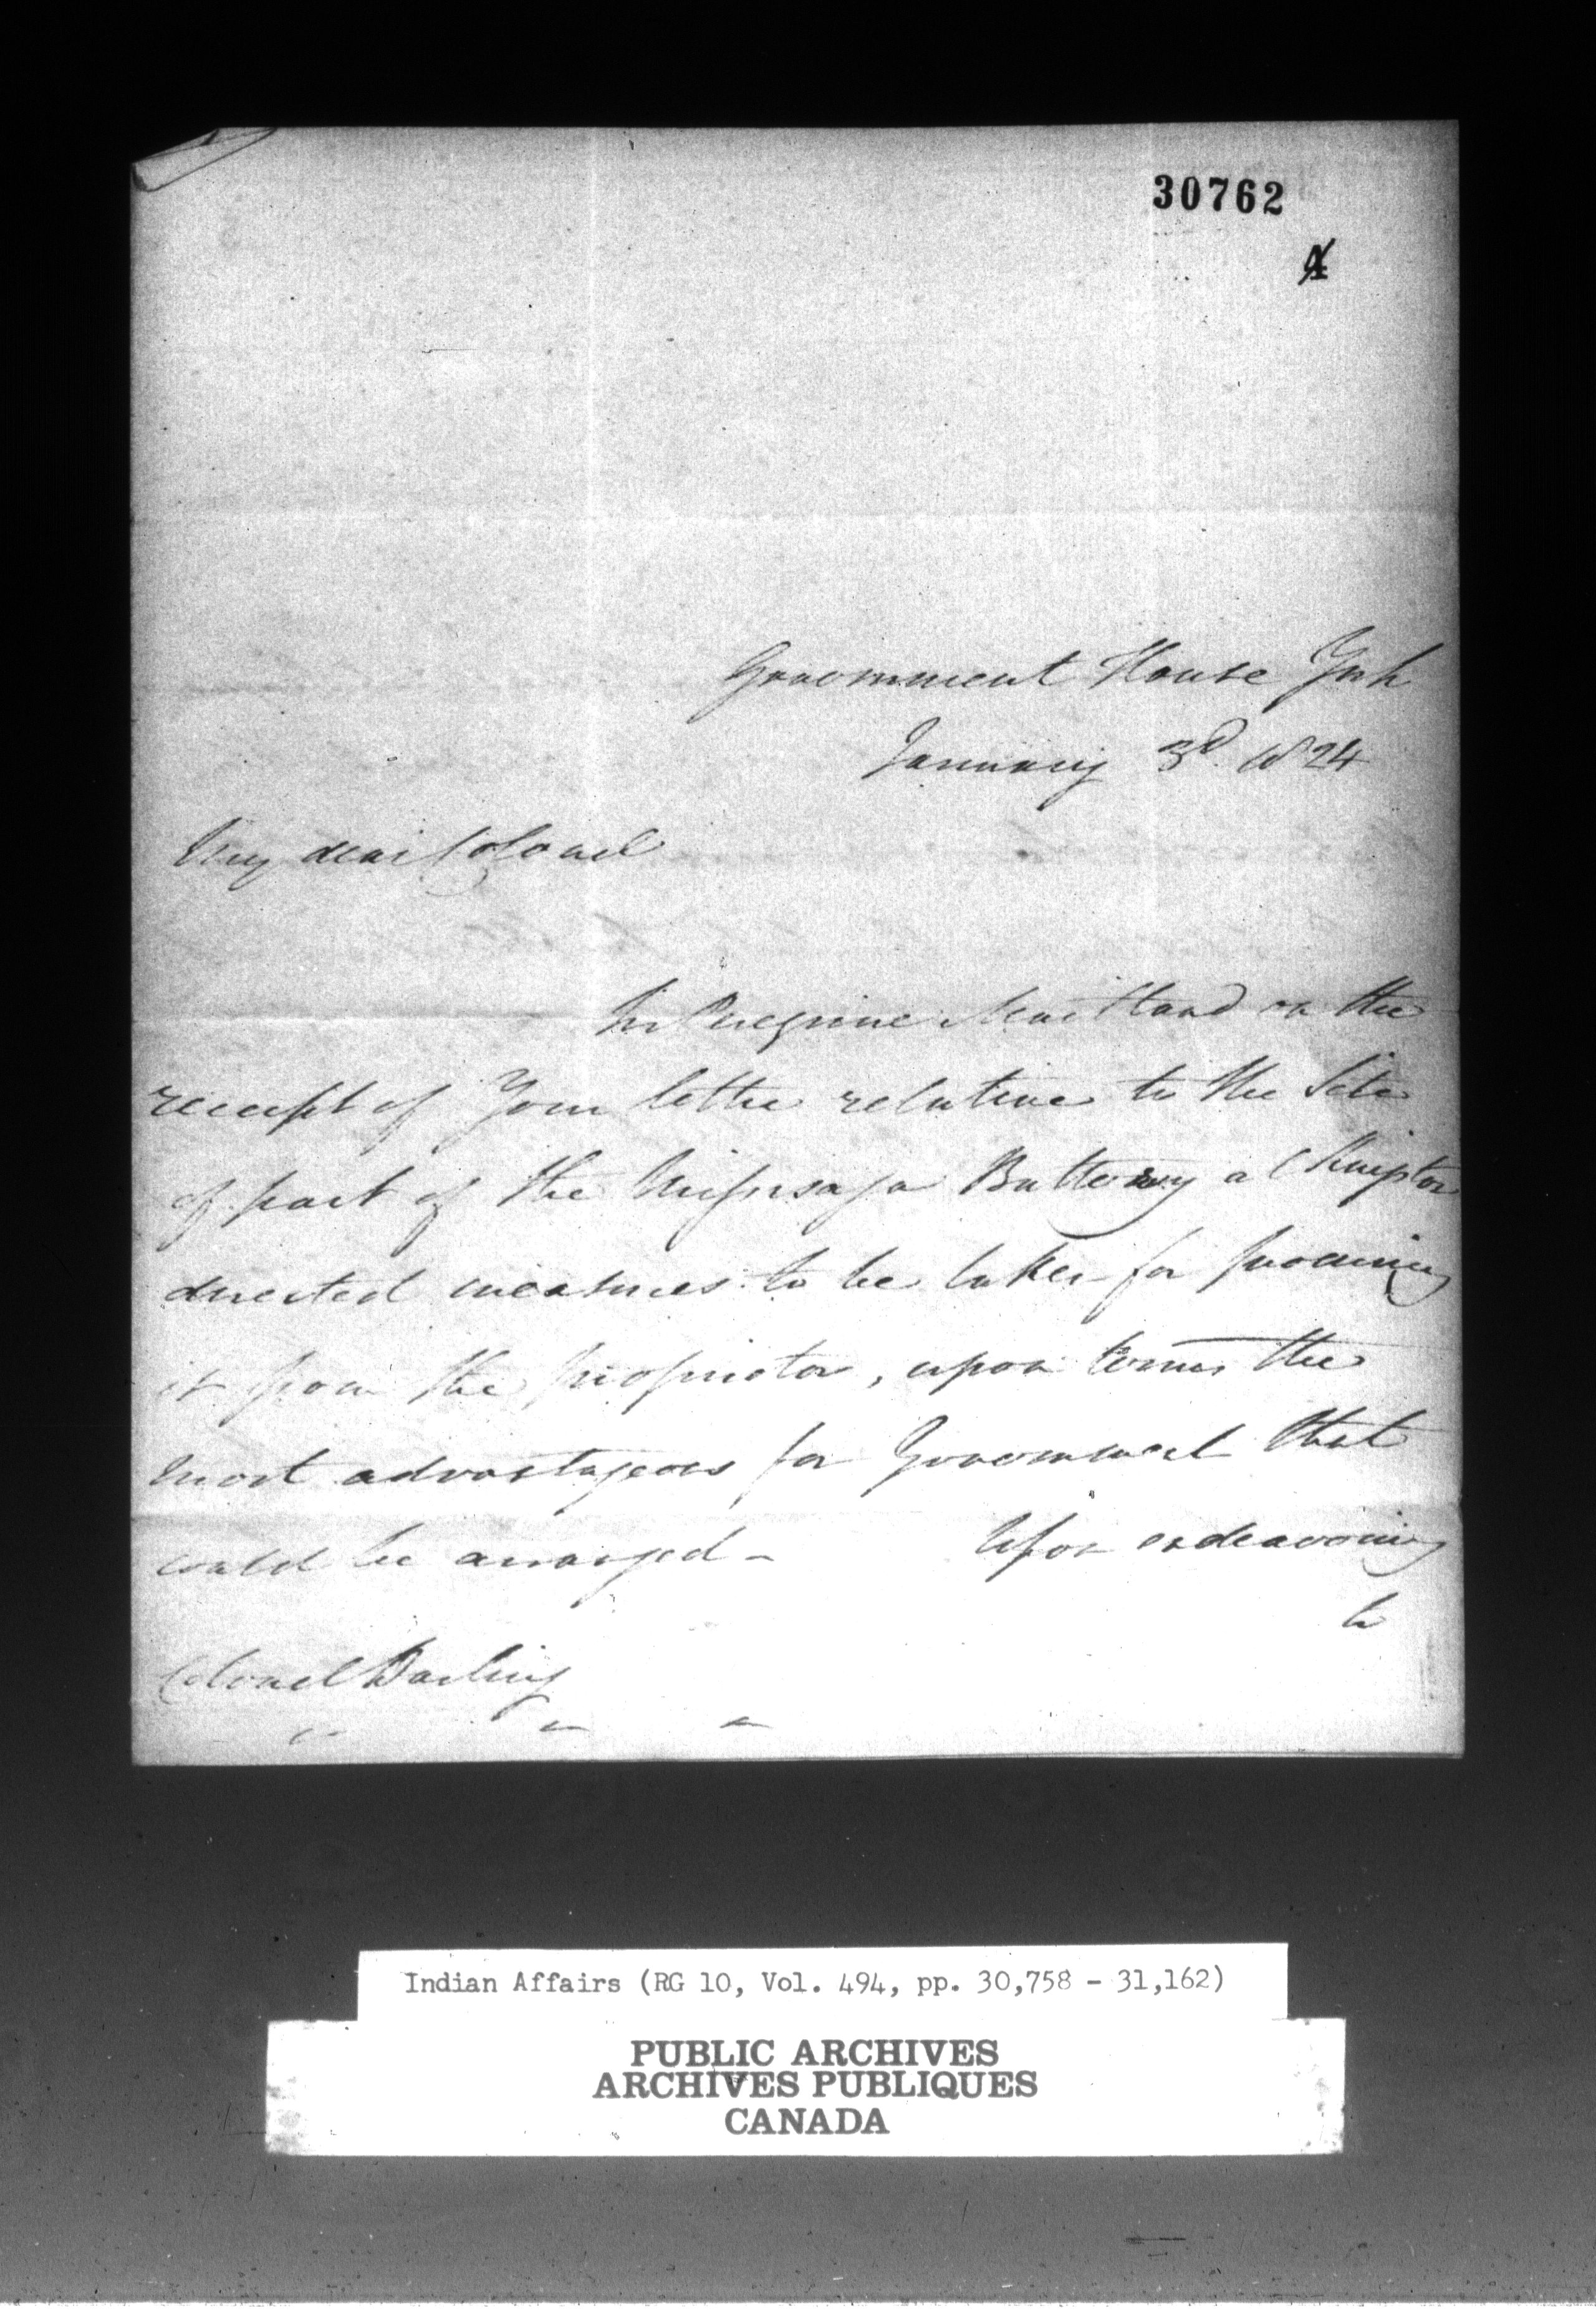 30762
4
Government House York
January 3d. 1824
My dear Colonel
Sir Peregrine Maitland on the
receipt of Your letter relative to the Site
of part of the Missisaga Battery at
directed measures to be taken for procuring
it from the proprietor, upon terms the
most advantageous for Government that
could be arranged - Upon endeavoring
to
Colonel Darling
Indian Affairs (RG 10, Vol. 494, pp. 30,758 - 31,162)
PUBLIC ARCHIVES
ARCHIVES PUBLIQUES
CANADA